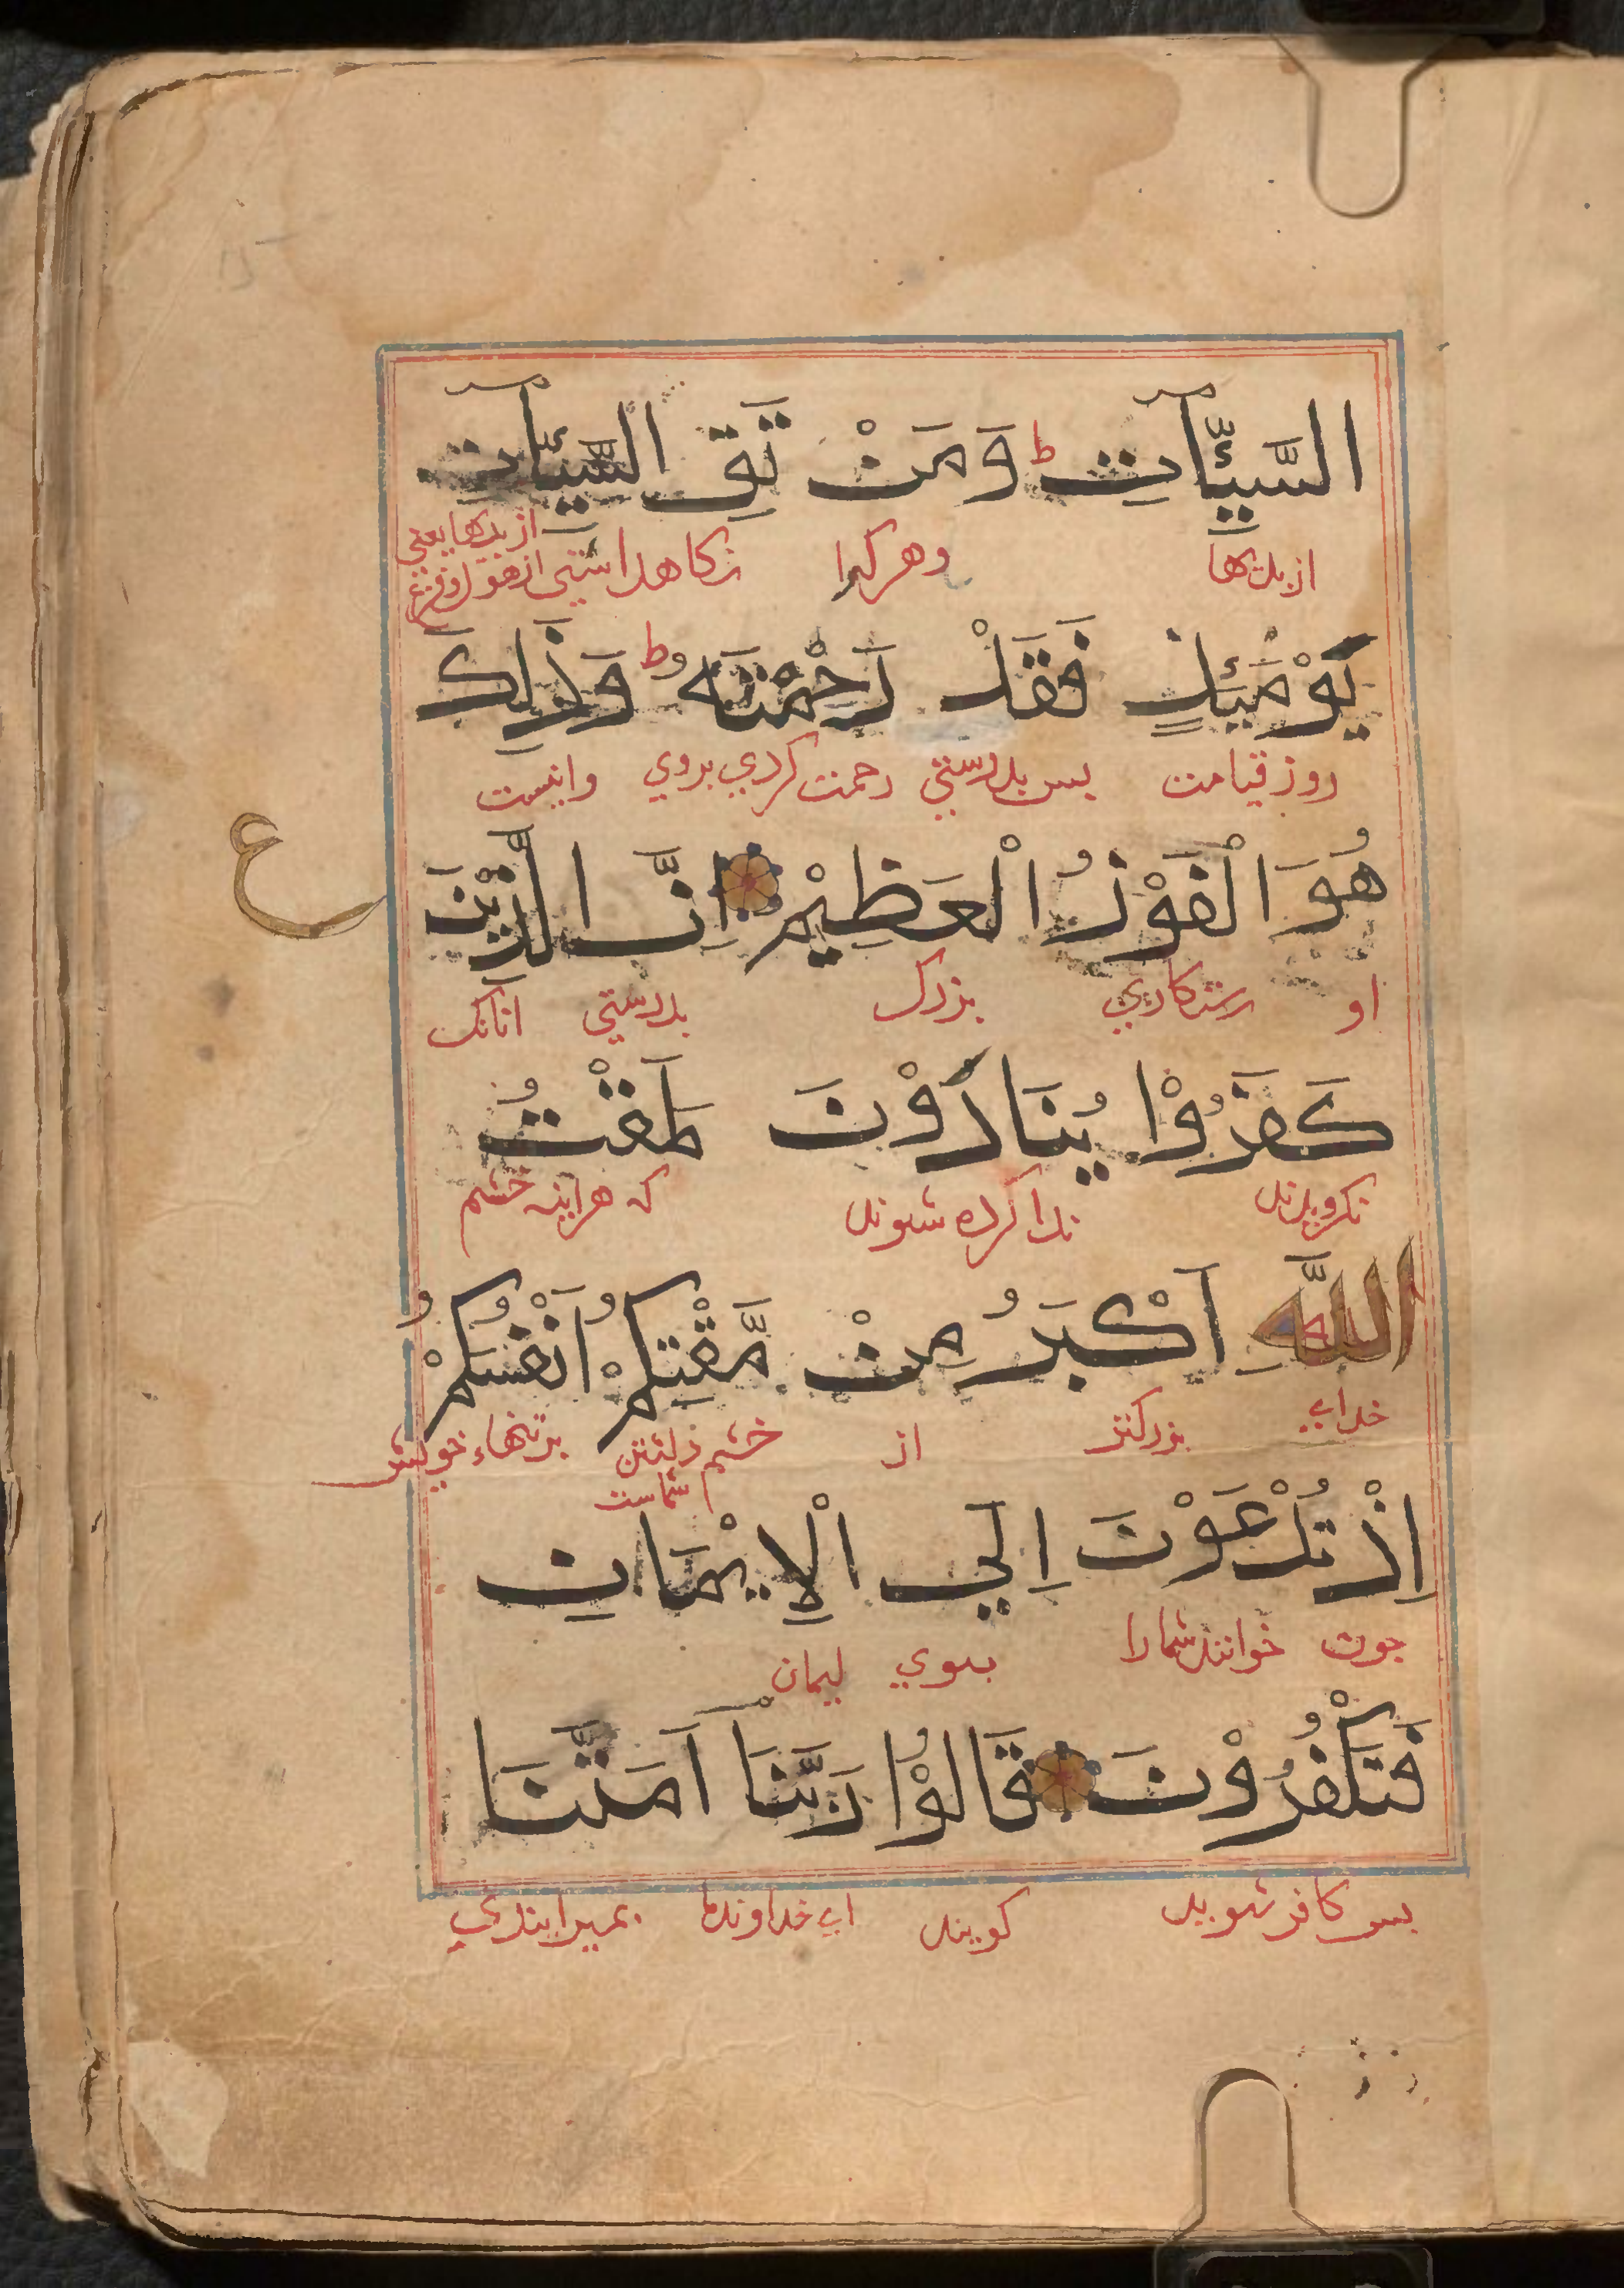 السَّيِّاٰتِ ط وَمَنْ تَقِ السَّيِّاٰتِ
از بدیها وهرکرا نکاه داشتی از بدیها یعنی از هول و فزع
يَوْمَئِذٍ فَقَدْ رَحِمْتَهُ ط وَذٰلِكَ
روز قیامت بس بدرستی رحمت کردی بروی واینست
هُوَ الْفَوْزُ الْعَظِيْمُ اِنَّ الَّذِيْنَ
ع
او رستکاری بزرک بدرستی انانک
كَفَرُوْا يُنَادَوْنَ لَمَقْتُ
نکرویدند ندا کرده شوند که هراینه خشم
اللّٰهِ اَكْبَرُ مِنْ مَّقْتِكُمْ اَنْفُسَكُمْ
خدای بزرکتر از خشم شماست برتنهاء خویش
اِذْ تُدْعَوْنَ اِلَي الْاِيْمَانِ
جون خوانند شمارا بسوی ایمان
فَتَكْفُرُوْنَ قَالُوْا رَبَّنَا اَمَتَّنَا
بس کافر شوید کویند ای خداوند ما بمیرانیدی